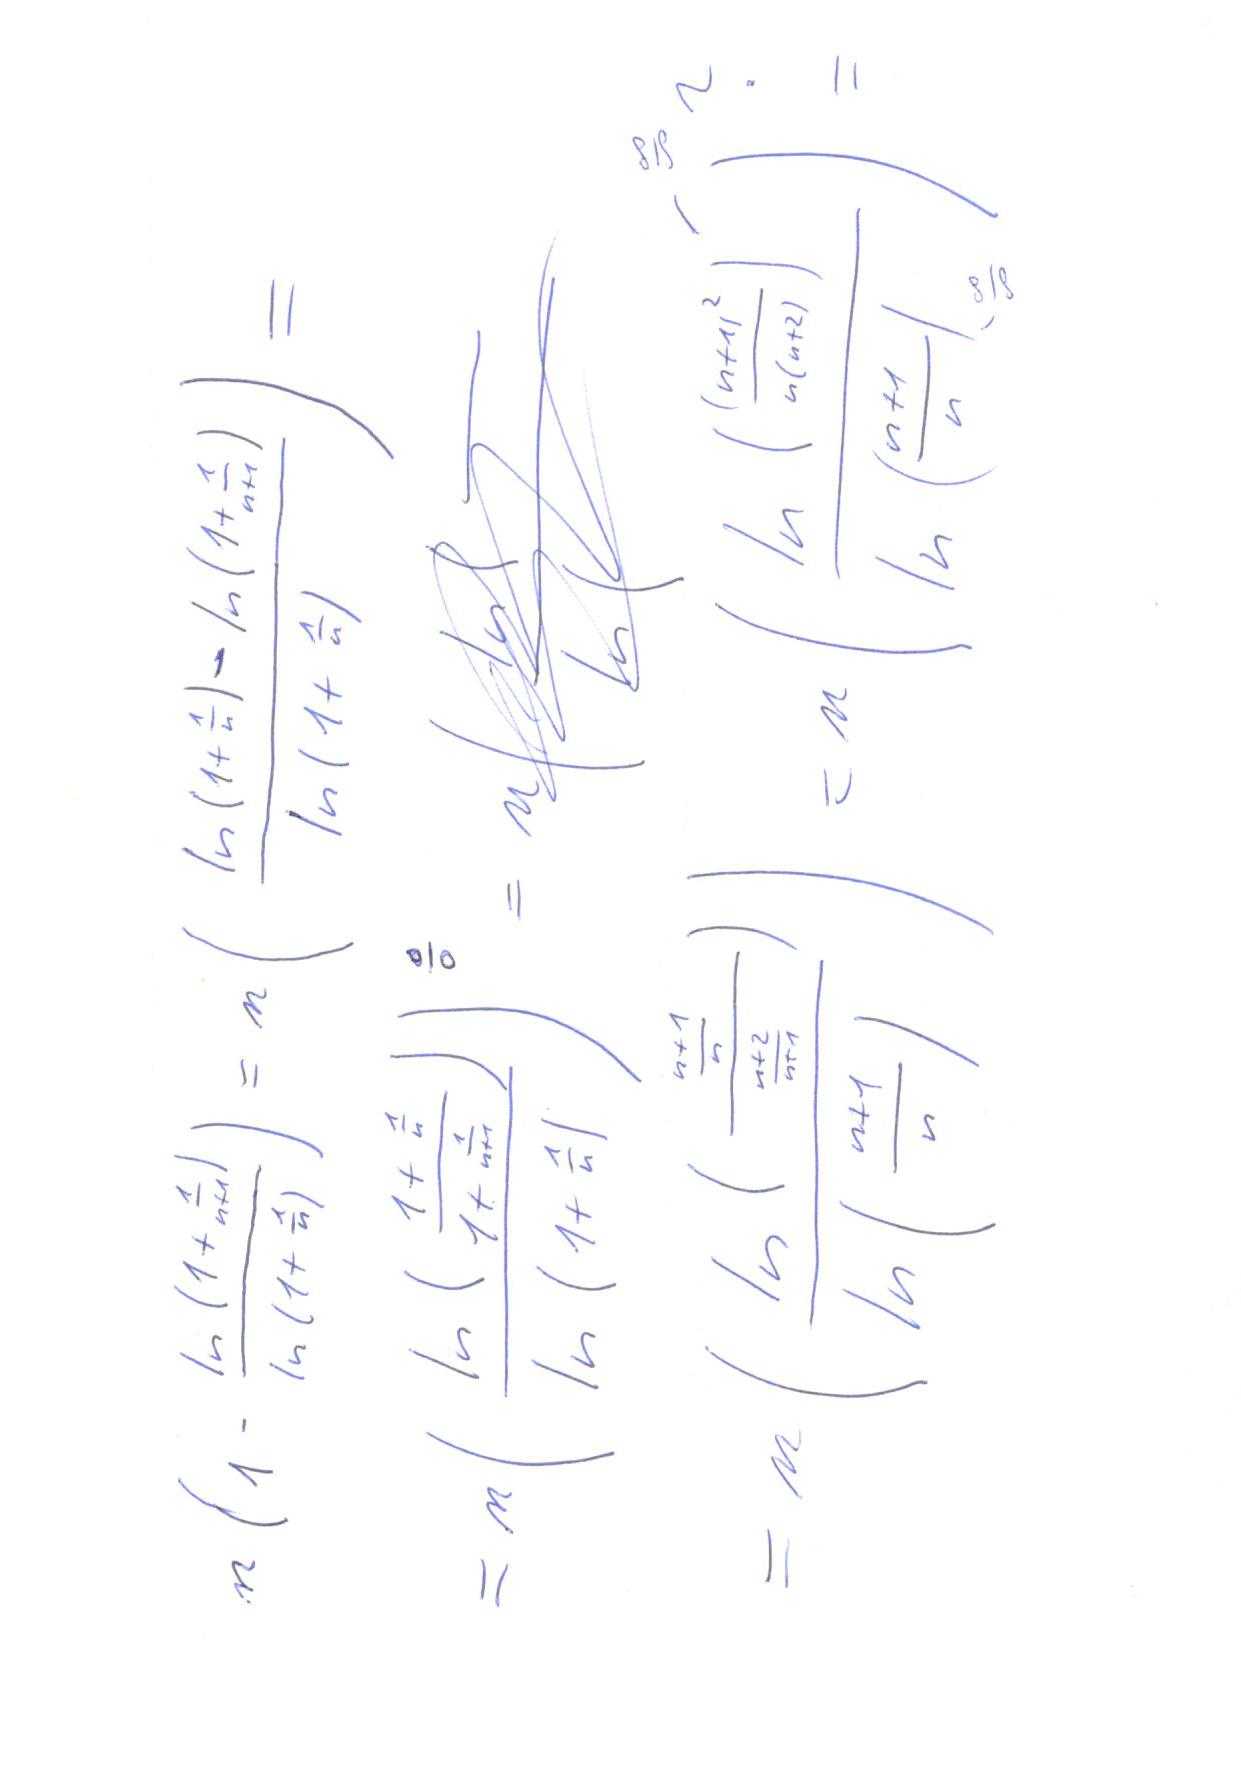 n(1 - ln(1+1/(n+1)) / ln(1+1/n)) = n( (ln(1+1/n) - ln(1+1/(n+1))) / ln(1+1/n) ) =
= n( ln( (1+1/n) / (1+1/(n+1)) ) / ln(1+1/n) ) 0/0 = n(
= n( ln( ((n+1)/n) / ((n+2)/(n+1)) ) / ln((n+1)/n) ) = n( ln( (n+1)² / n(n+2) ) / ln((n+1)/n) ) =